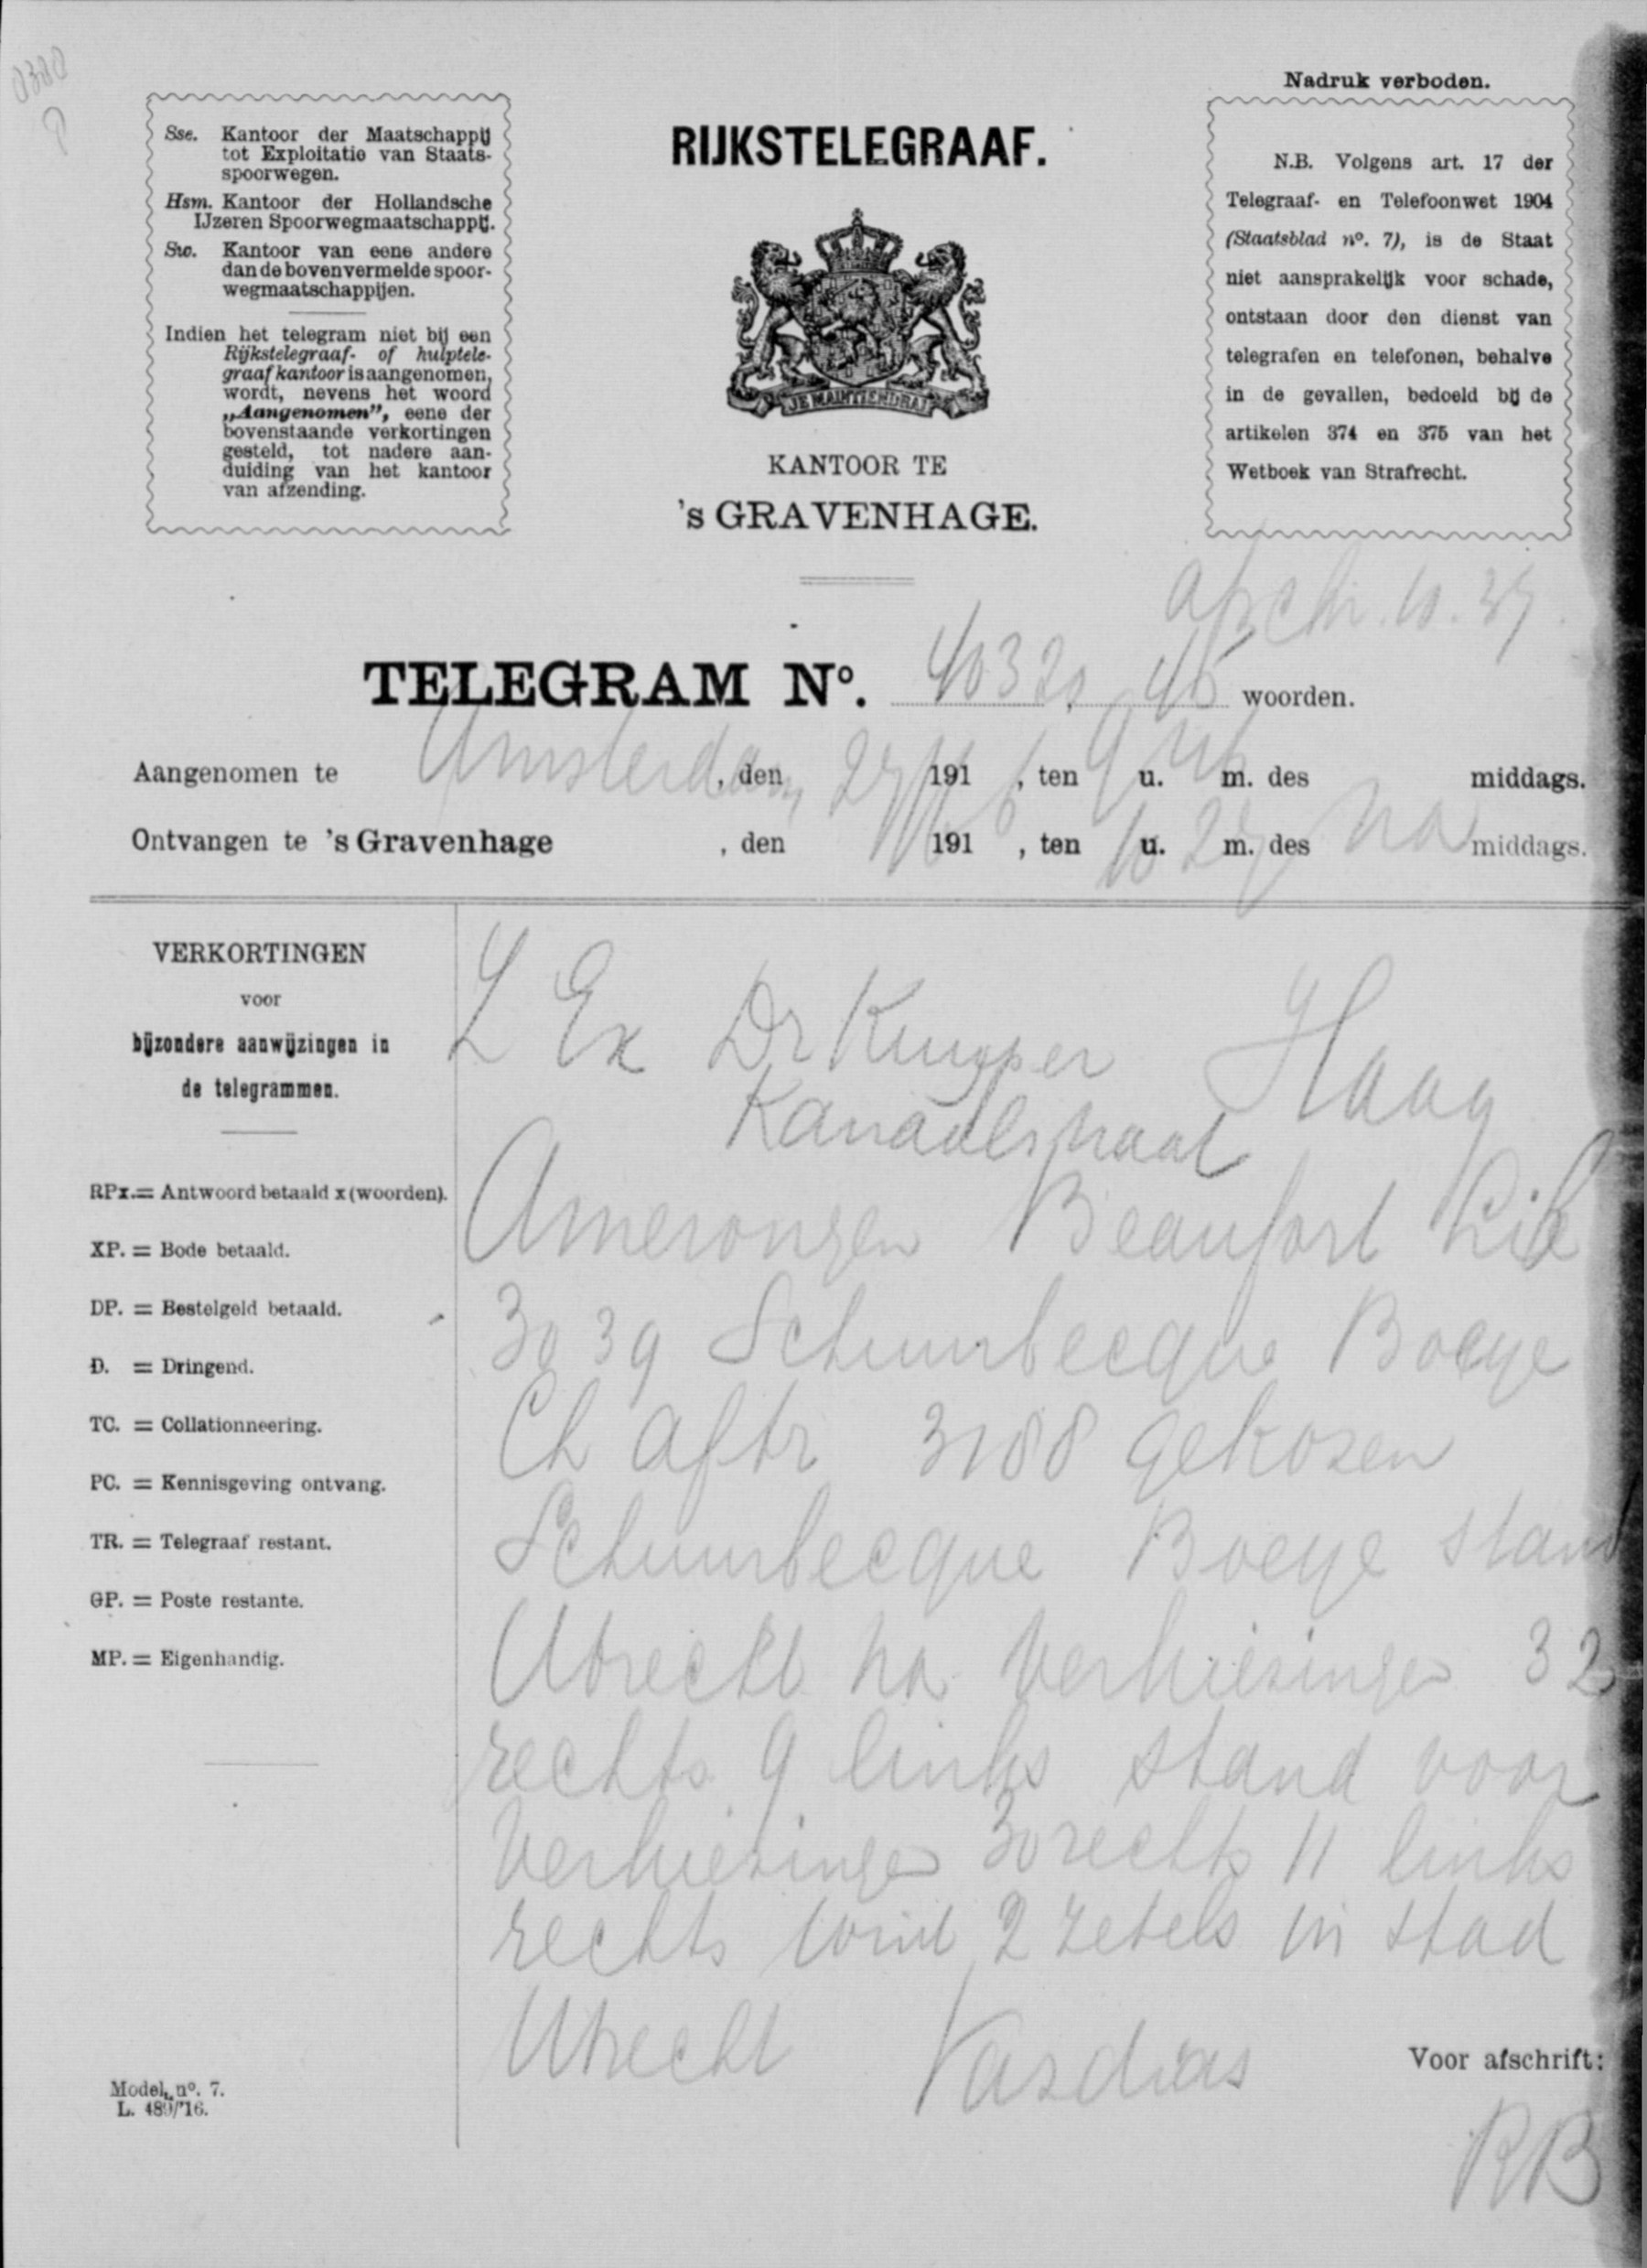 Nadruk verboden.
Sse. Kantoor der Maatschappij
tot Exploitatie van Staats-
spoorwegen.
Hsm. Kantoor der Hollandsche
IJzeren Spoorwegmaatschappij.
Sw. Kantoor van eene andere
dan de bovenvermelde spoor-
wegmaatschappijen.
Indien het telegram niet bij een
Rijkstelegraaf- of hulptele-
graafkantoor is aangenomen,
wordt, nevens het woord
„Aangenomen”, eene der
bovenstaande verkortingen
gesteld, tot nadere aan-
duiding van het kantoor
van afzending.
RIJKSTELEGRAAF.
JE MAINTIENDRAI
KANTOOR TE
's GRAVENHAGE.
N.B. Volgens art. 17 der
Telegraaf- en Telefoonwet 1904
(Staatsblad nº. 7), is de Staat
niet aansprakelijk voor schade,
ontstaan door den dienst van
telegrafen en telefonen, behalve
in de gevallen, bedoeld bij de
artikelen 374 en 375 van het
Wetboek van Strafrecht.
TELEGRAM Nº. 40320 45 woorden.
Aangenomen te Amsterdam, den 27/6 191 , ten 9 u. m. des middags.
Ontvangen te 's Gravenhage , den 191 , ten 10 u. 27 m. des na middags.
VERKORTINGEN
voor
bijzondere aanwijzingen in
de telegrammen.
RPx. = Antwoord betaald x (woorden).
XP. = Bode betaald.
DP. = Bestelgeld betaald.
D. = Dringend.
TC. = Collationneering.
PC. = Kennisgeving ontvang.
TR. = Telegraaf restant.
GP. = Poste restante.
MP. = Eigenhandig.
Model nº. 7.
L. 480/'16.
Z Ex Dr Kuyper Haag
Kanaalstraat
Amerongen Beaufort Lib
3039 Schuurbecque Boeye
Ch aftr 3188 gekozen
Schuurbecque Boeye stand
Utrecht na verkiezingen 32
rechts 9 links stand voor
verkiezingen 30 rechts 11 links
rechts wint 2 zetels in stad
Utrecht Vasdias
Voor afschrift:
RB